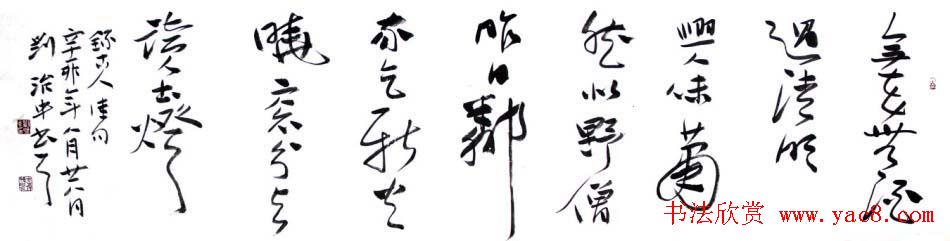 無花無酒
過清明
興味蕭
然似野僧
昨日鄰
家乞新火
曉窗分与
讀書燈
錄古人佳句
辛卯年八月廿八日
书法欣赏
www.yac8.com